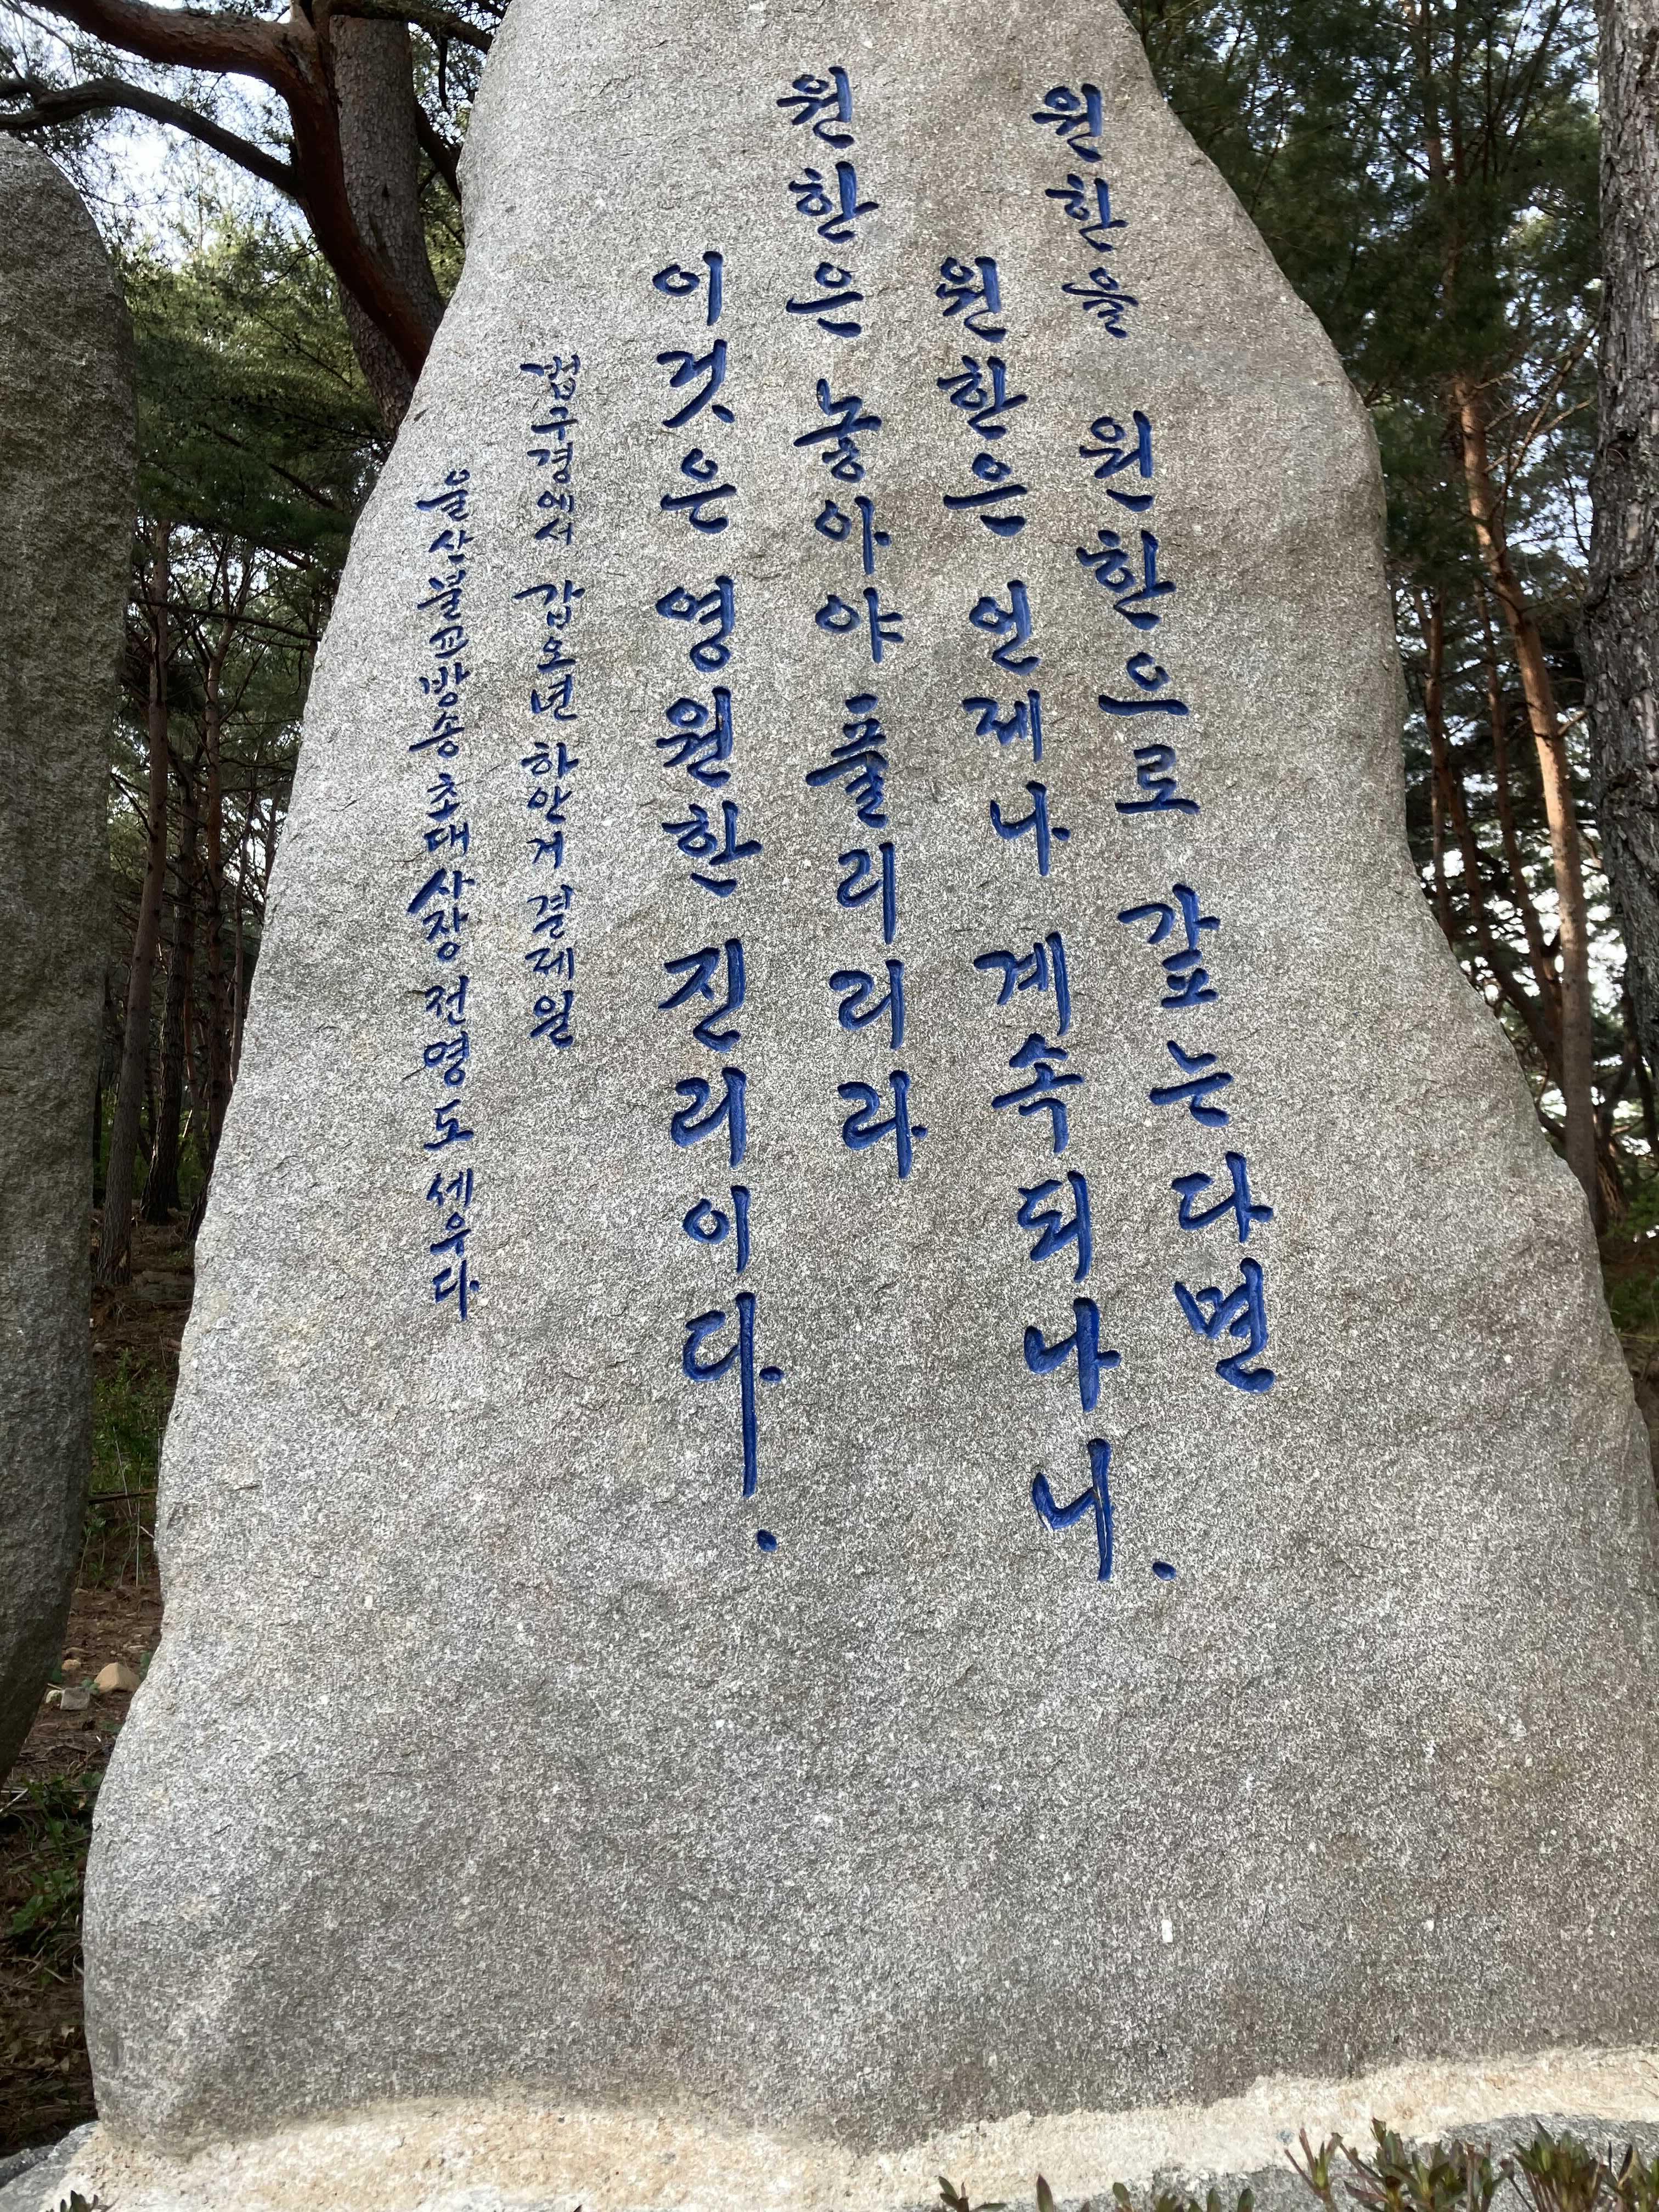 원한을 원한으로 갚는다면
원한은 언제나 계속되나니.
원한은 놓아야 풀리리라
이것은 영원한 진리이다.
법구경에서 갑오년 하안거 결제일
울산불교방송 초대사장 전영도 세우다